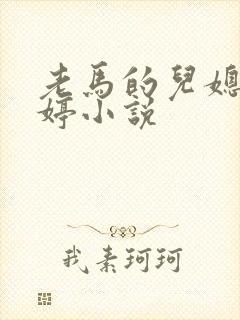 老馬的兒媳
婷小說
我素珂珂